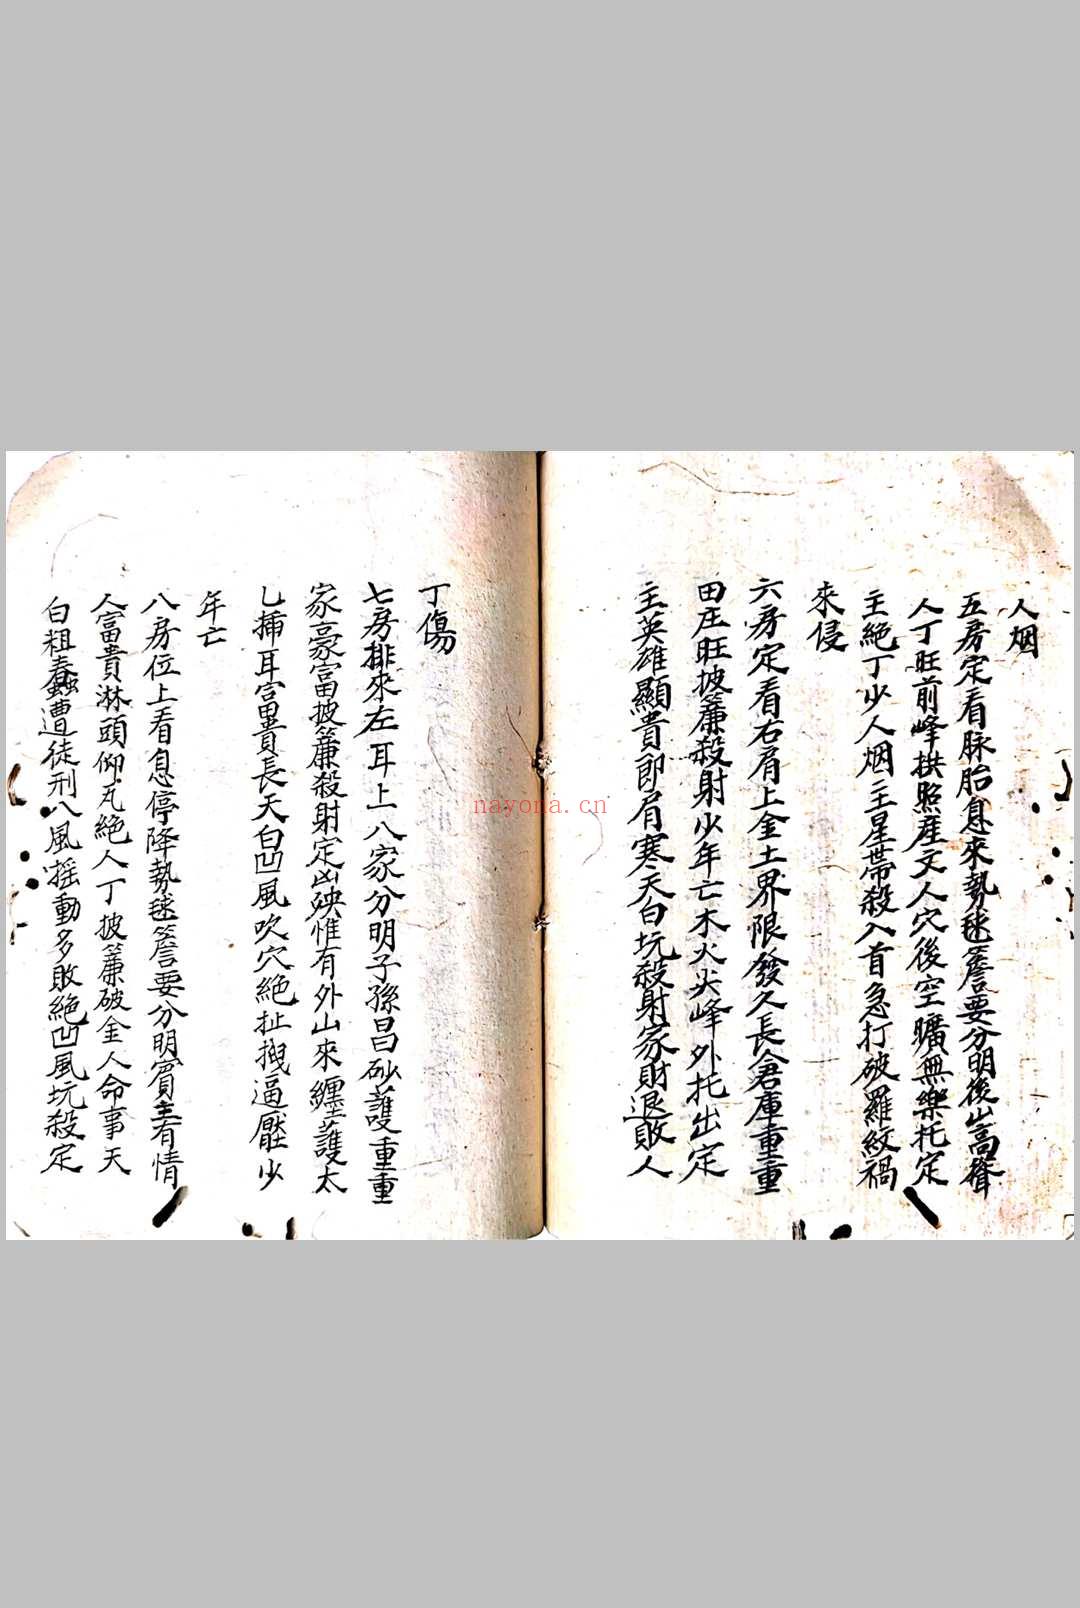 人烟
五房定看脉胎息來勢毬簷要分明後山高聳
人丁旺前峰拱照産文人穴後空曠無樂托定
主絶丁少人烟主星帶殺入首急打破羅紋禍
來侵
六房定看右肩上金土界限發久長倉庫重重
田庄旺披簾殺射少年亡木火尖峰外托出定
主英雄顯貴郎肩寒天白坑殺射家財退敗人
丁傷
七房排來左耳上八家分明子孫昌砂護重重
家豪富披簾殺射定凶殃惟有外山來纏護太
乜揷耳富貴長天白凹風吹穴絶扯拽逼壓少
年亡
八房位上看息停降勢毬簷要分明賓主有情
人富貴淋頭仰瓦絶人丁披簾破金人命事天
白粗蠢遭徒刑八風摇動多敗絶凹風坑殺定
nayona.cn